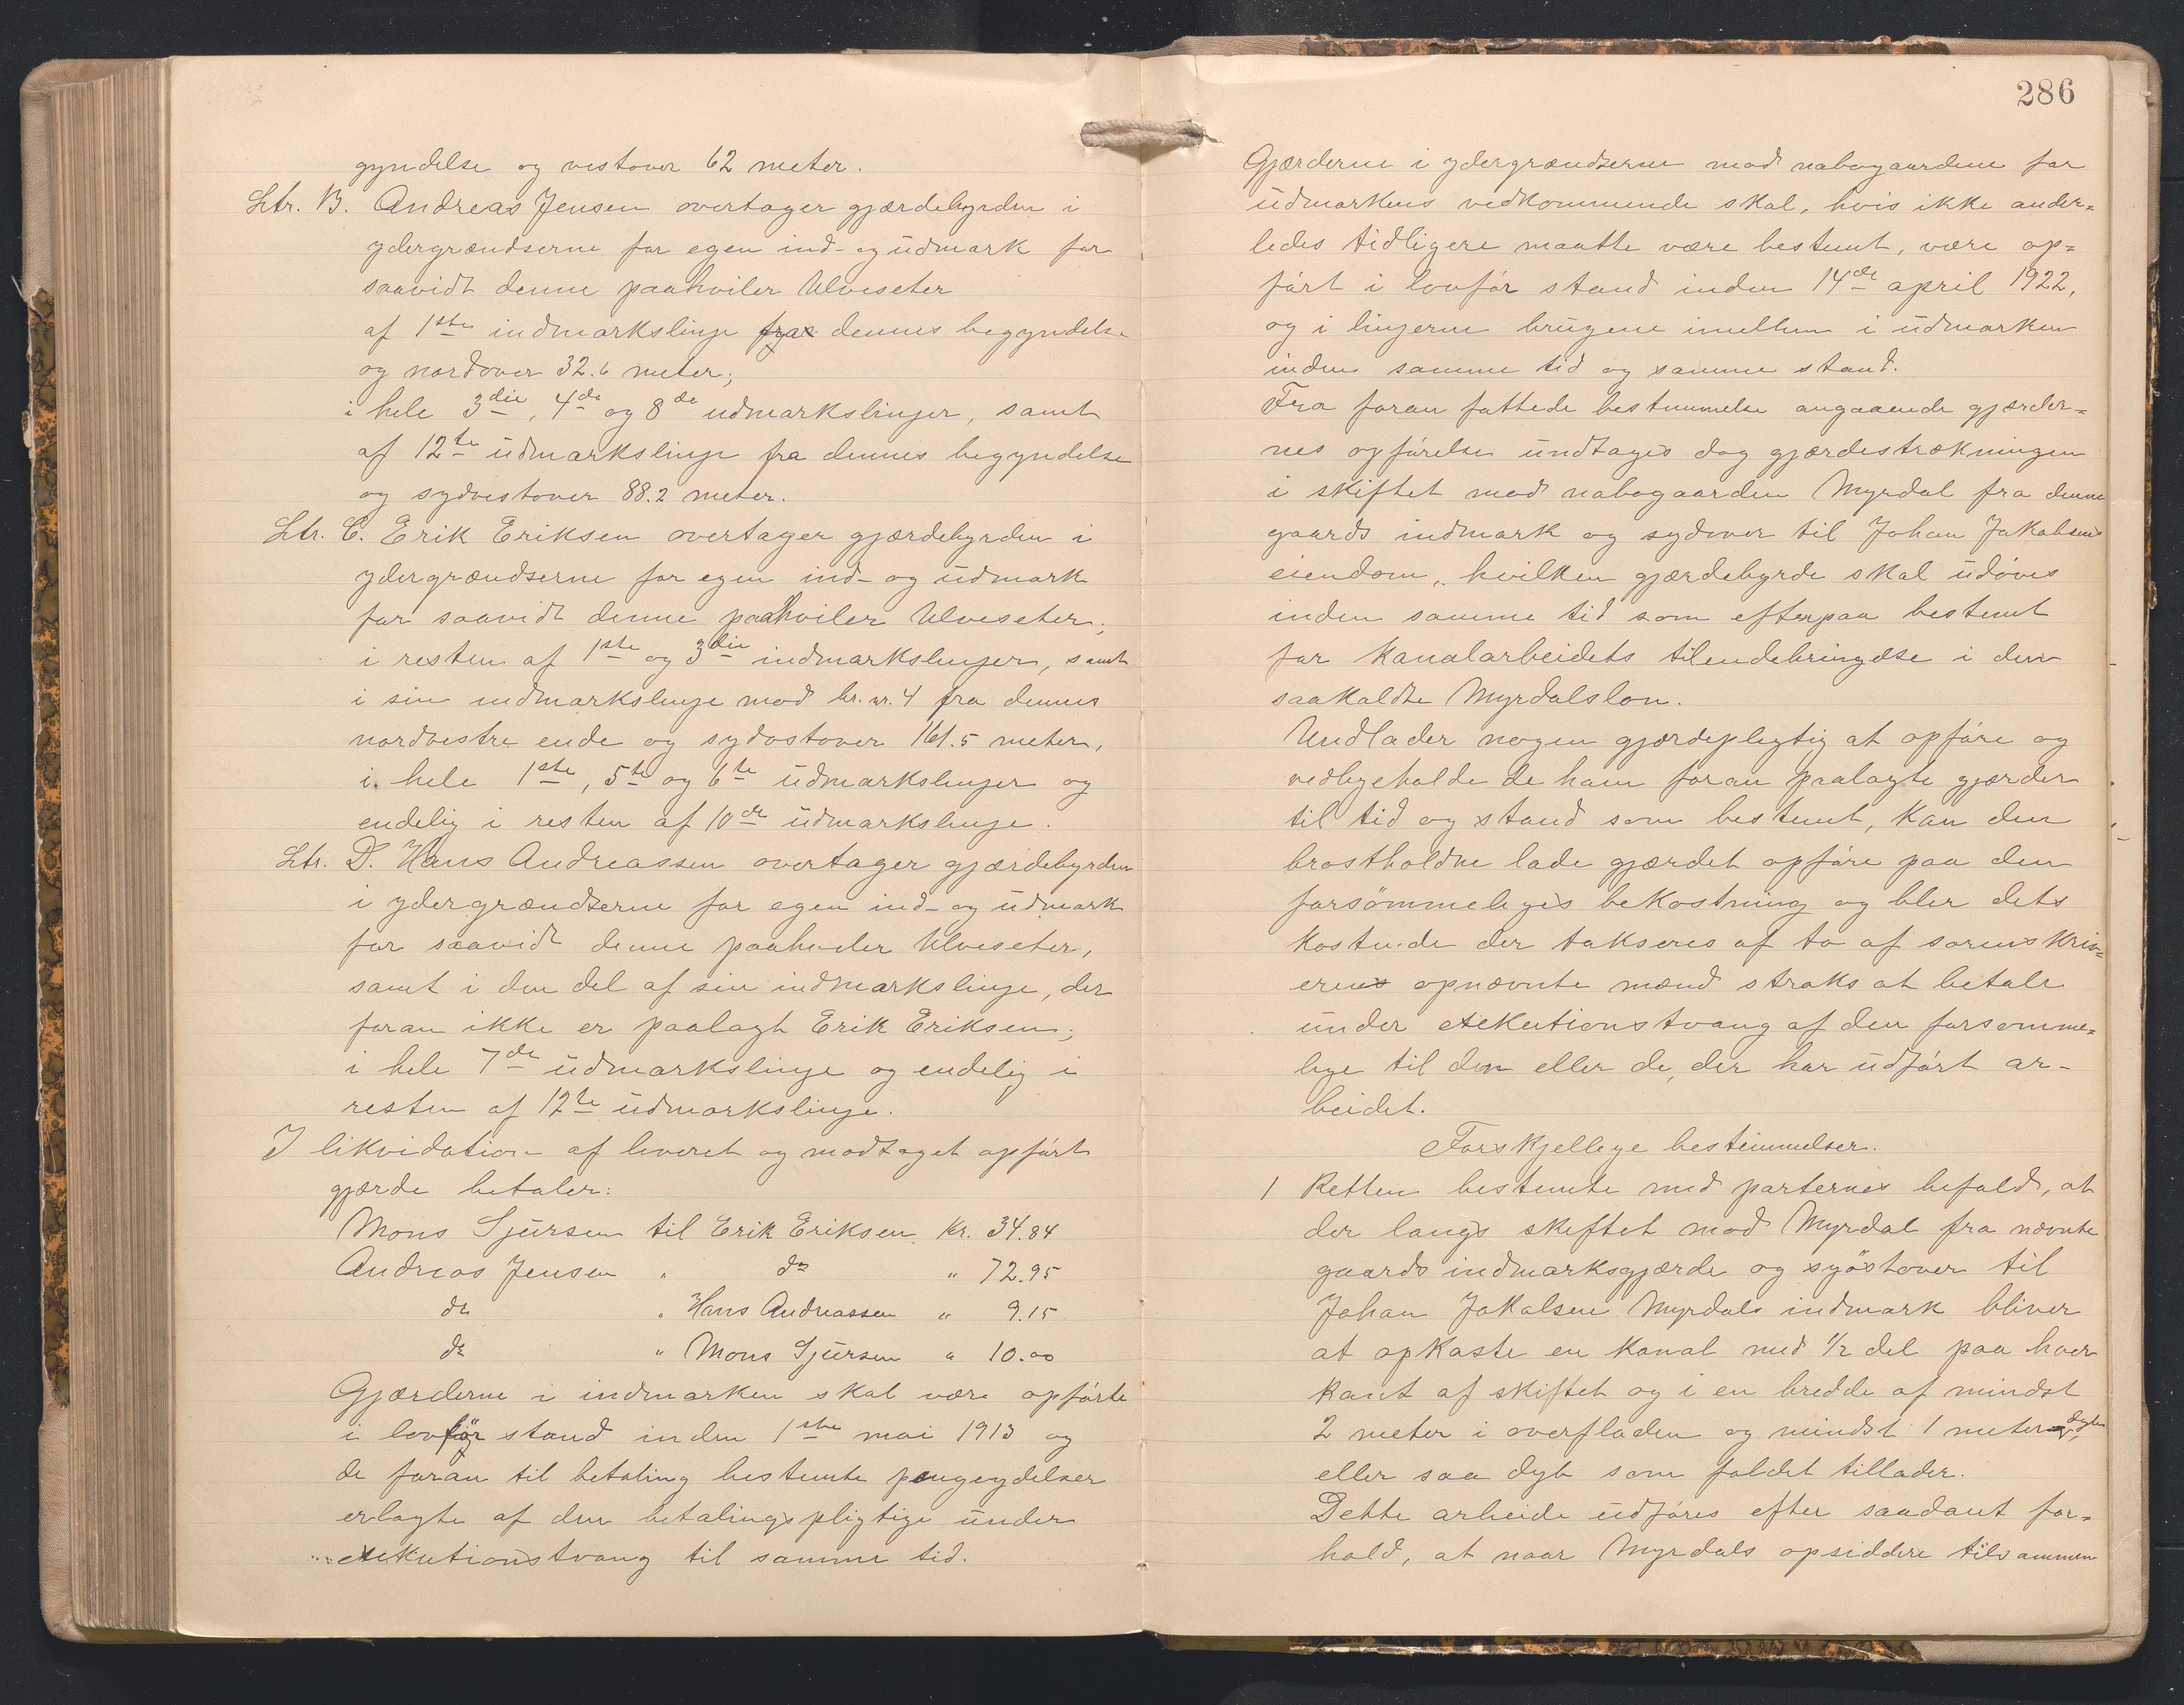 gyndelse og vestover 62 meter.
Ltr. B. Andreas Jensen overtager gjærdebyrden i
ydergrændserne for egen ind- og udmark for
saavidt denne paahviler Ulveseter
af 1ste indmarkslinje fra dennes begyndelse
og nordover 32.6 meter;
i hele 3die, 4de og 8de udmarkslinjer, samt
af 12te udmarkslinje fra dennes begyndelse
og sydvestover 88.2 meter.
Ltr. C. Erik Eriksen overtager gjærdebyrden i
ydergrændserne for egen ind- og udmark
for saavidt denne paahviler Ulveseter;
i resten af 1ste og 3die indmarkslinjer, samt
i sin indmarkslinje mod br. nr. 4 fra dennes
nordvestre ende og sydostover 161.5 meter,
i hele 1ste, 5te og 6te udmarkslinjer og
endelig i resten af 10de udmarkslinje.
Ltr. D. Hans Andreassen overtager gjærdebyrden
i ydergrændserne for egen ind- og udmark
for saavidt denne paahviler Ulveseter,
samt i den del af sin indmarkslinje, der
foran ikke er paalagt Erik Eriksen;
i hele 7de udmarkslinje og endelig i
resten af 12te udmarkslinje.
I likvidation af leveret og modtaget opført
gjærde betaler:
Mons Sjursen til Erik Eriksen Kr. 34.84
Andreas Jensen " do " 72.95
do " Hans Andreassen " 9.15
do " Mons Sjursen " 10.00
Gjærderne i indmarken skal være opførte
i lovfør stand inden 1ste mai 1913 og
de foran til betaling bestemte pengeydelser
erlagte af den betalingspligtige under
exekutionstvang til samme tid.
286
Gjærderne i ydergrændserne mod nabogaardene for
udmarkens vedkommende skal, hvis ikke ander=
ledes tidligere maatte være bestemt, være op=
ført i lovfør stand inden 14de april 1922,
og i linjerne brugene imellem i udmarken
inden samme tid og samme stand.
Fra foran fattede bestemmelse angaaende gjærder=
nes opførelse undtages dog gjærdestrækningen
i skiftet mod nabogaarden Myrdal fra denne
gaards indmark og sydover til Johan Jakobsens
eiendom, hvilken gjærdebyrde skal udøves
inden samme tid som efterpaa bestemt
for kanalarbeidets tilendebringelse i den
saakaldte Myrdalslon.
Undlader nogen gjærdepligtig at opføre og
vedligeholde de ham foran paalagte gjærder
til tid og stand som bestemt, kan den
brøstholdne lade gjærdet opføre paa den
forsømmeliges bekostning og blir dets
kostende der takseres af to af sorenskriv=
eren opnævnte mænd straks at betale
under exekutionstvang af den forsømme=
lige til den eller de, der har udført ar-
beidet.
Forskjellige bestemmelser.
1 Retten bestemte med parternes befald, at
der langs skiftet mod Myrdal fra nævnte
gaards indmarksgjærde og sydstover til
Johan Jakobsen Myrdals indmark bliver
at opkaste en kanal med 1/2 del paa hver
kant af skiftet og i en bredde af mindst
2 meter i overfladen og mindst 1 meter dyb,
eller saa dyb som faldet tillader.
Dette arbeide udføres efter saadant for=
hold, at naar Myrdals opsiddere tilsammen